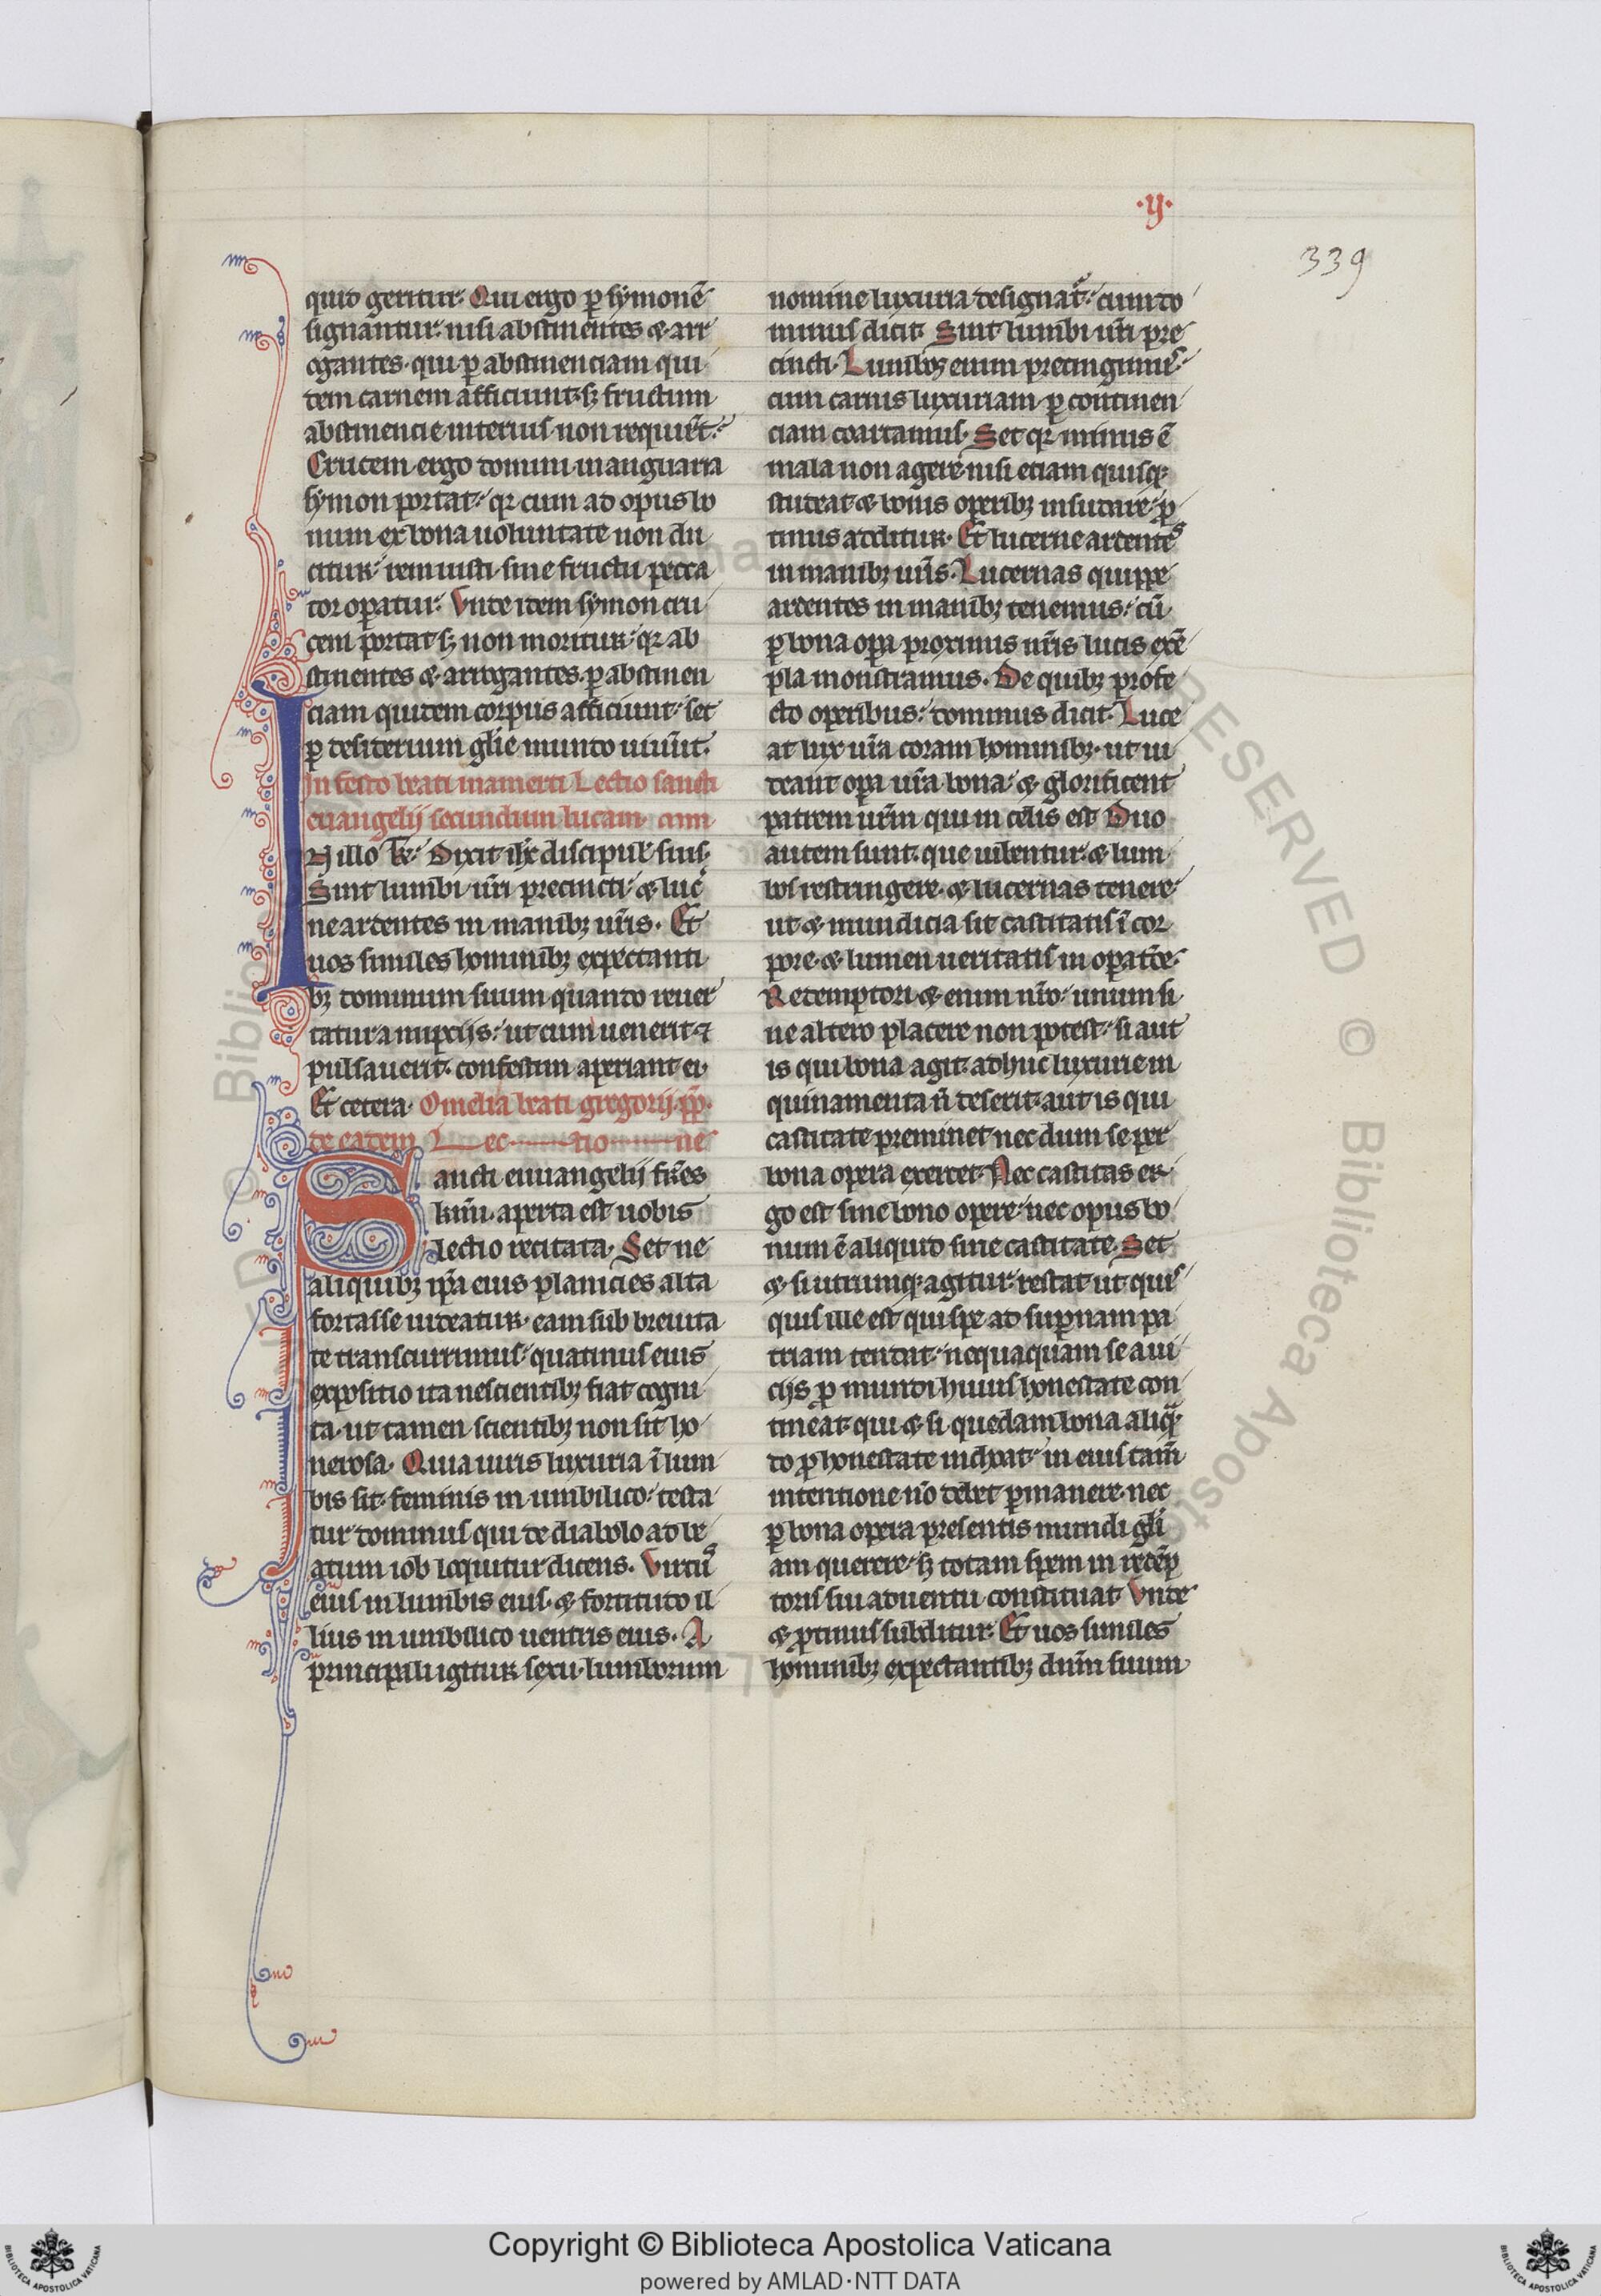 ·y·
339
quid geritur. Qui ergo ꝑ symonē
signantur: nisi abstinentes ⁊ arr
ogantes. qui ꝑ abstinenciam qui
dem carnem afficiunt. sꝫ fructum
abstinencie interius non requirūt.
Crucem ergo domini in anguaria
symon portat: qr cum ad opus bo
num ex bona uoluntate non du
citur: rem iusti sine fructu pecca
tor operatur. Vnde idem symon cru
cem portat sꝫ non moritur: qr ab
stinentes ⁊ arrogantes. ꝑ abstinen
ciam quidem corpus afficiunt: set
ꝑ desiderium glīe mundo uiuūt.
In festo beati mamerti Lectio sancti
euangelij secundum lucam.
N illo tꝑe. Dixit ihc discipul suis.
Sint lumbi ur̄i precincti: ⁊ luc
ne ardentes in manibꝫ ur̄is. Et
uos similes hominibꝫ expectanti
bꝫ dominum suum quando reuer
tatur a nupciis: ut cum uenerit ⁊
pulsauerit. confestim aperiant ei.
Et cetera. Omelia beati gregorij. pp̄.
de eadem Lec tio ne
Sancti euuangelij fr̄es
kmī. aperta est uobis
lectio recitata. Set ne
aliquibꝫ ip̄a eius planicies alta
fortasse uideatur. eam sub breuita
te transcurrimus: quatinus eius
expositio ita nescientibꝫ fiat cogni
ta. ut tamen scientibꝫ non sit ho
nerosa. Quia uiris luxuria ī lum
bis sit. feminis in umbilico: testa
tur dominus qui de diabolo ad be
atum iob loquitur dicens. Virtus
eius in lumbis eius. ⁊ fortitudo il
lius in umbilico uentris eius. A
principali igitur sexu. lumborum
nomine luxuria designatur: cum do
minus dicit. Sint lumbi ur̄i pre
cincti. Lumbos enim precingimus
cum carnis luxuriam ꝑ continen
ciam coartamus. Set qr minus ē
mala non agere nisi etiam quisqꝫ
studeat ⁊ bonis operibꝫ insudare: ꝓ
tinus additur. Et lucerne ardentes
in manibꝫ ur̄is. Lucernas quippe
ardentes in manibꝫ tenemus: cū
ꝑ bona oꝑa proximis nr̄is lucis exē
pla monstramus. De quibꝫ profe
cto operibus: dominus dicit. Luce
at lux ur̄a coram hominibꝫ. ut ui
deant oꝑa ur̄a bona: ⁊ glorificent
patrem ur̄m qui in celis est. Duo
autem sunt. que iubentur. ⁊ lum
bos restringere. ⁊ lucernas tenere:
ut ⁊ mundicia sit castitatis ī cor
pore. ⁊ lumen ueritatis in operatōe.
Redemptori ⁊ enim nr̄o: unum si
ne altero placere non potest: si aut
is qui bona agit. adhuc luxurie in
quinamenta n̄ deserit. aut is qui
castitate preminet nec dum se per
bona opera exercet. Nec castitas er
go est sine bono opere: nec opus bo
num ē aliquid sine castitate. Set
⁊ si utrumqꝫ agitur. restat ut quis
quis ille est qui spe ad suꝑnam pa
triam tendit: nequaquam se a ui
cijs ꝑ mundi huius honestate con
tineat. qui ⁊ si quedam bona aliqn̄
do ꝑ honestate inchoat: in eius tam̄
intentione nō debet ꝑmanere. nec
ꝑ bona opera presentis mundi glī
am querere. sꝫ totam spem in redēp
toris sui aduentu constituat. Vnde
⁊ ꝓtinus subditur. Et uos similes
hominibꝫ expectantibꝫ dn̄m suum
Copyright © Biblioteca Apostolica Vaticana
powered by AMLAD·NTT DATA